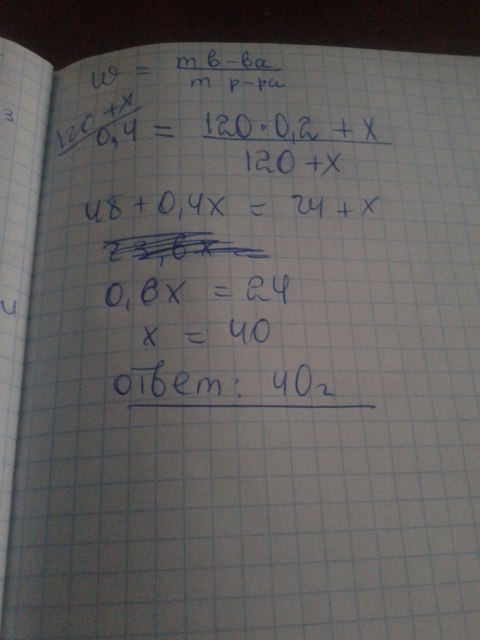 ω = m в-ва / m р-ра
120+x / 0,4 = 120·0,2 + x / 120+x
48 + 0,4x = 24 + x
0,6x = 24
x = 40
ответ: 40г